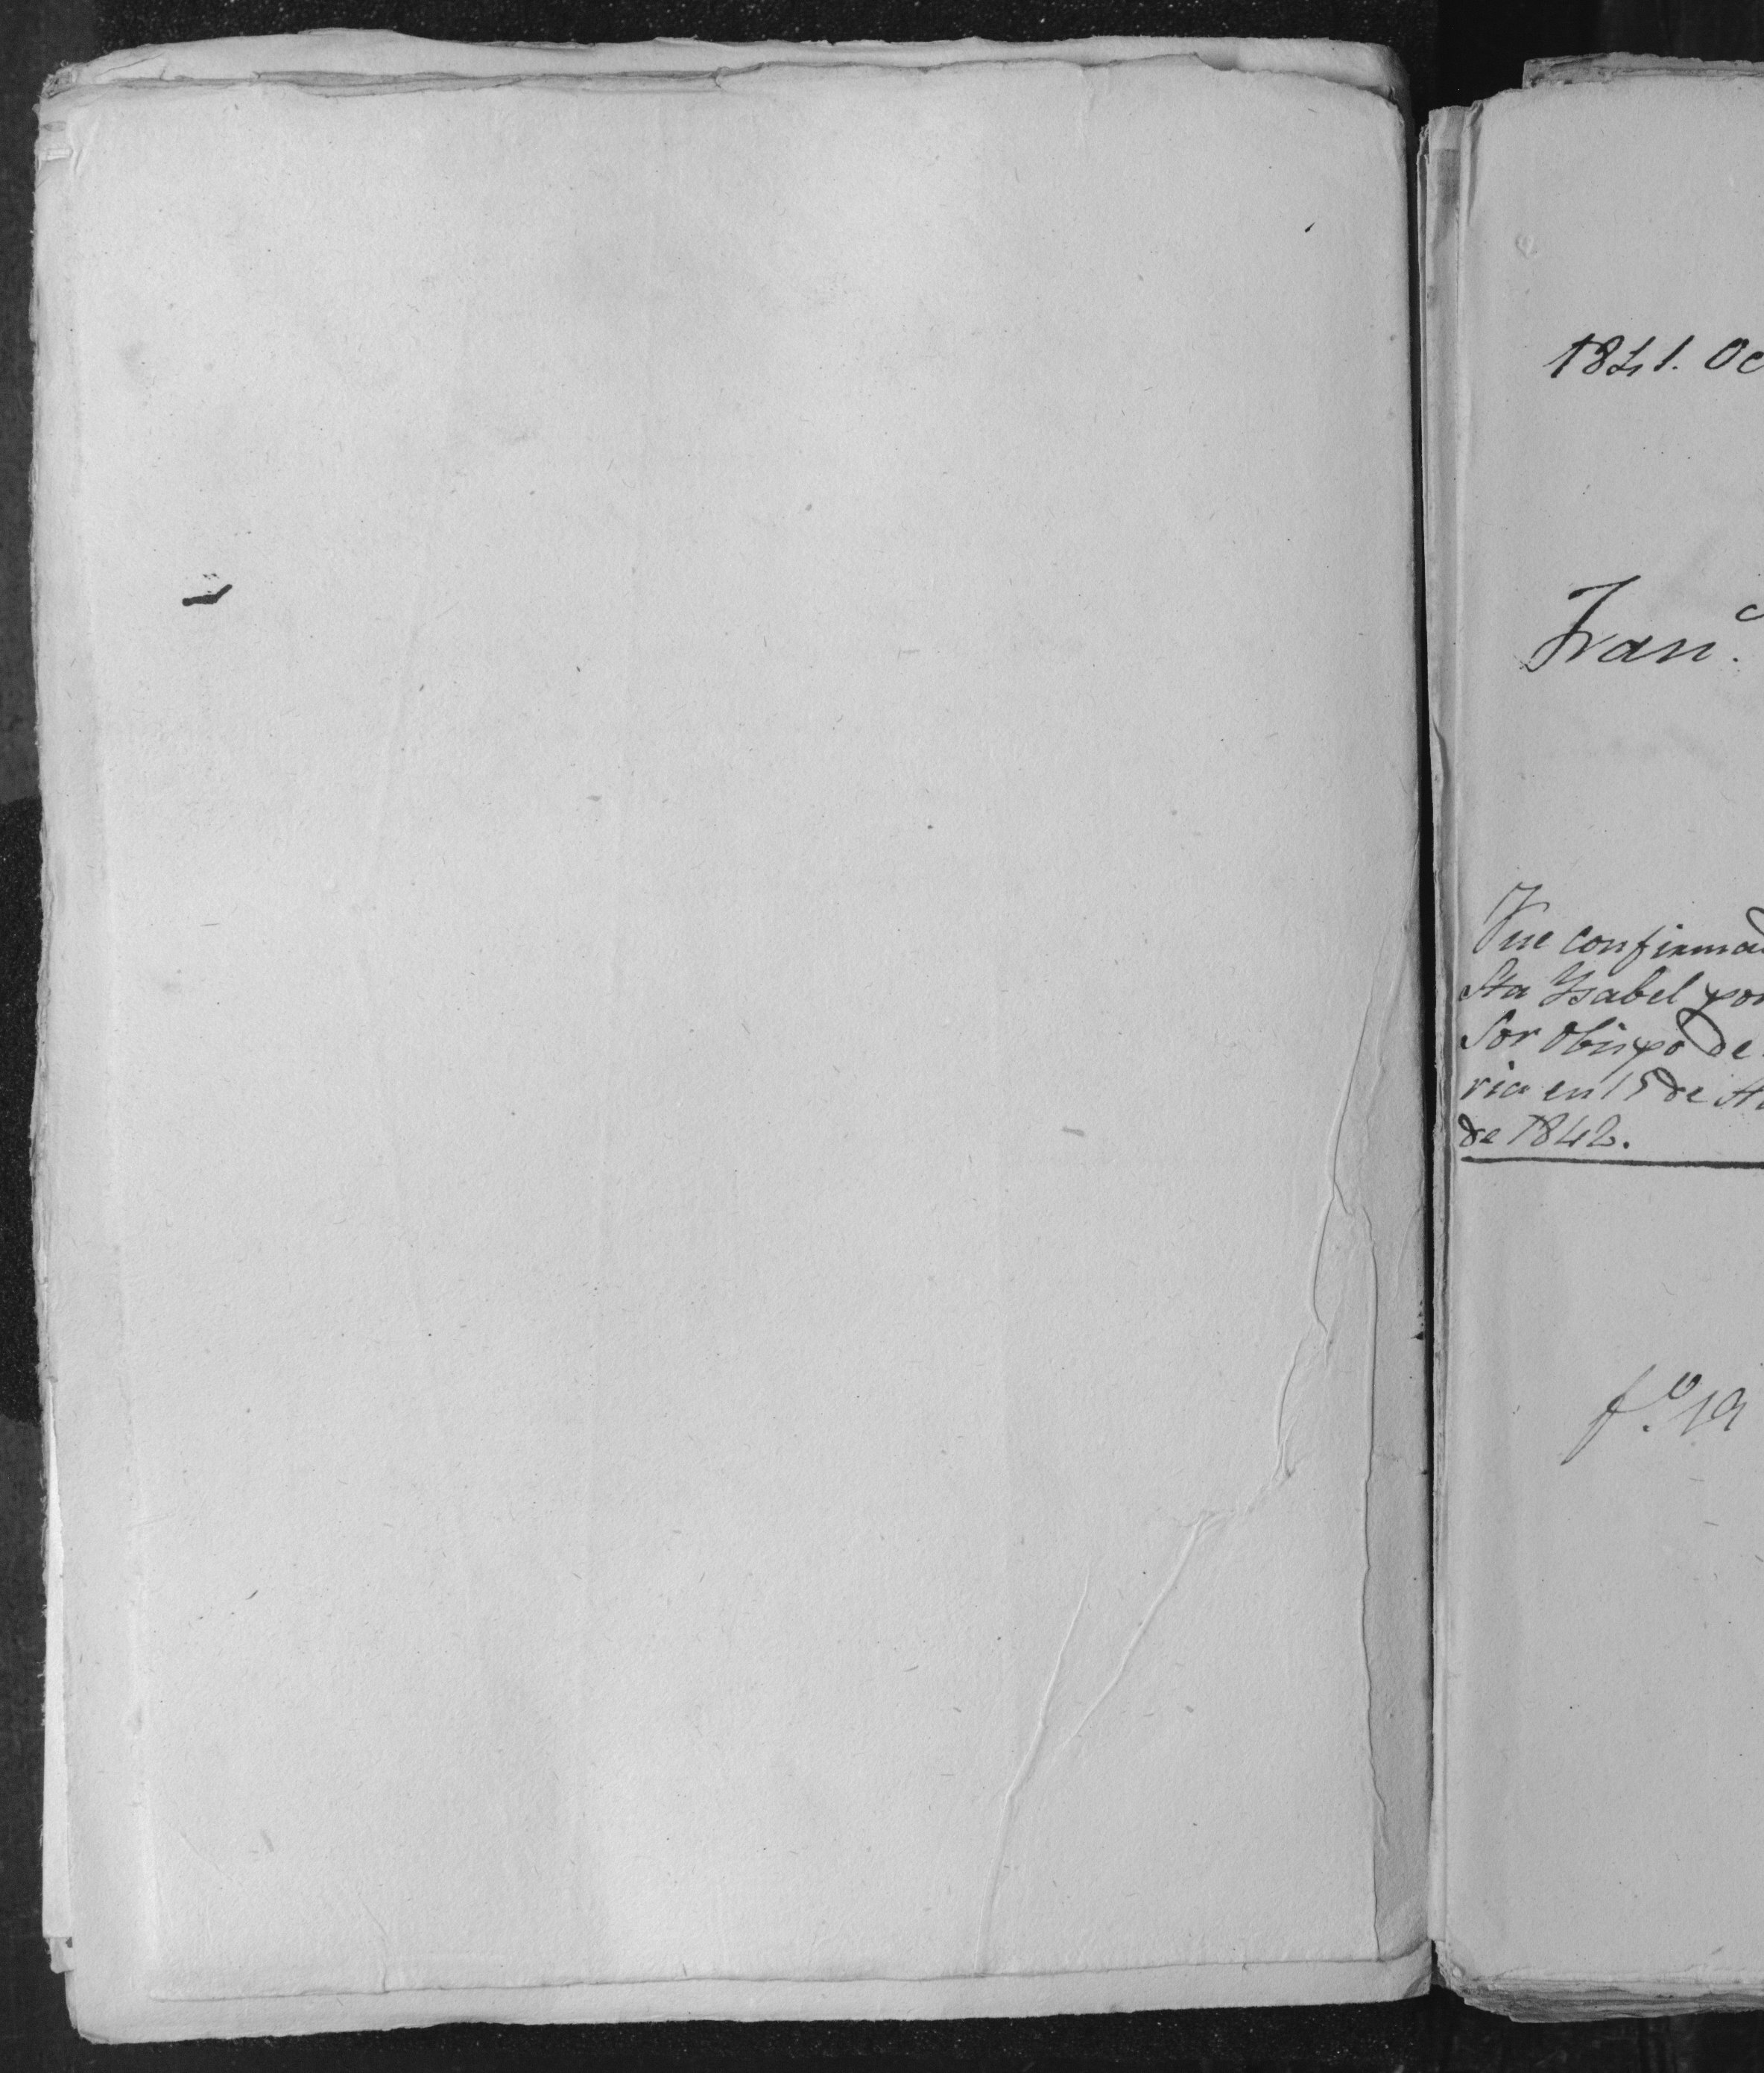 1841. Oc
Fran.c
Fue confirmad
Sta Ysabel por
Sor Obispo de
ria en 15 de
de 1842.
fo. 19